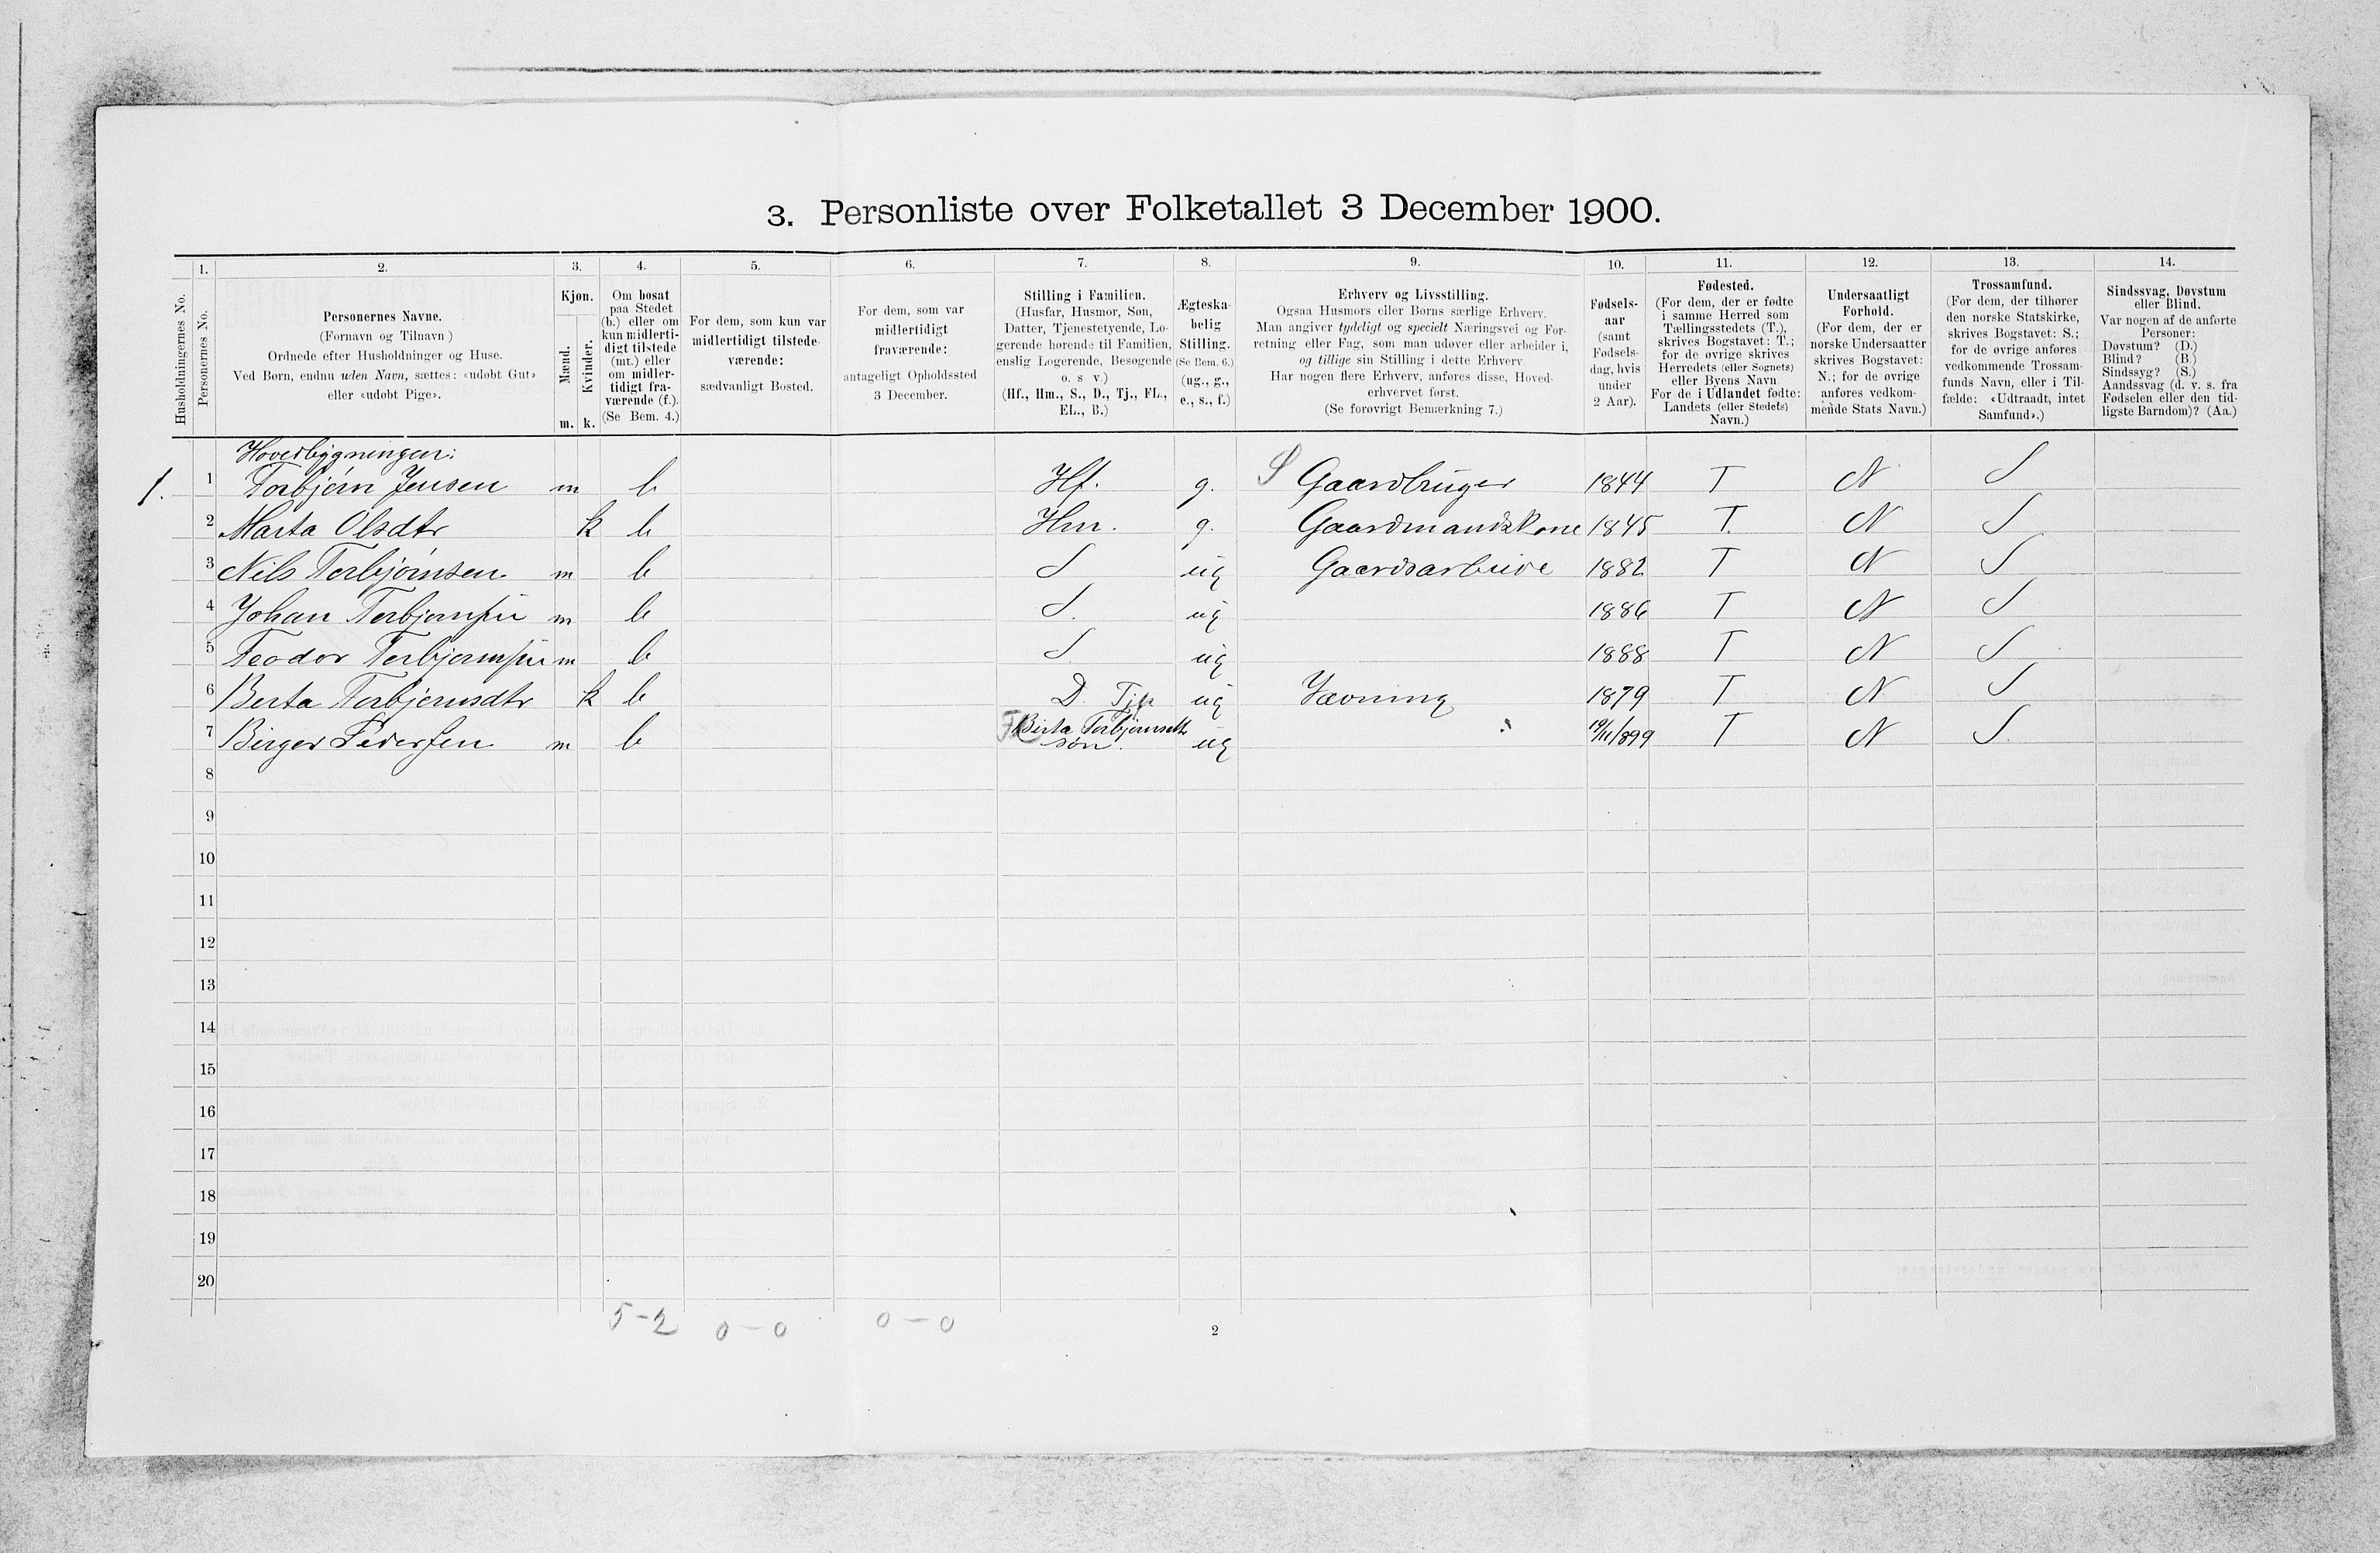 3. Personliste over Folketallet 3 December 1900.
1. 2. 3. 4. 5. 6. 7. 8. 9. 10. 11. 12. 13. 14.
Husholdningernes No.
Personernes No.
Personernes Navne.
(Fornavn og Tilnavn)
Ordnede efter Husholdninger og Huse.
Ved Børn, endnu uden Navn, sættes: «udøbt Gut»
eller «udøbt Pige».
Kjøn.
Mænd.
Kvinder.
m. k.
Om bosat
paa Stedet
(b.) eller om
kun midlerti-
digt tilstede
(mt.) eller
om midler-
tidigt fra-
værende (f.).
(Se Bem. 4.)
For dem, som kun var
midlertidigt tilstede-
værende:
sædvanligt Bosted.
For dem, som var
midlertidigt
fraværende:
antageligt Opholdssted
3 December.
Stilling i Familien.
(Husfar, Husmor, Søn,
Datter, Tjenestetyende, Lo-
gerende hørende til Familien,
enslig Logerende, Besøgende
o. s v.)
(Hf., Hm., S., D., Tj., FL.,
EL., B.)
Ægteska-
belig
Stilling.
(Se Bem. 6.)
(ug., g.,
e., s., f.)
Erhverv og Livsstilling.
Ogsaa Husmors eller Børns særlige Erhverv.
Man angiver tydeligt og specielt Næringsvei og For-
retning eller Fag, som man udøver eller arbeider i,
og tillige sin Stilling i dette Erhverv
Har nogen flere Erhverv, anføres disse, Hoved-
erhvervet først.
(Se forøvrigt Bemærkning 7.)
Fødsels-
aar
(samt
Fødsels-
dag, hvis
under
2 Aar).
Fødested.
(For dem, der er fødte
i samme Herred som
Tællingsstedets (T.),
skrives Bogstavet: T.;
for de øvrige skrives
Herredets (eller Sognets)
eller Byens Navn
For de i Udlandet fødte:
Landets (eller Stedets)
Navn.)
Undersaatligt
Forhold.
(For dem, der er
norske Undersaatter
skrives Bogstavet:
N.; for de øvrige
anføres vedkom-
mende Stats Navn.)
Trossamfund.
(For dem, der tilhører
den norske Statskirke,
skrives Bogstavet: S.;
for de øvrige anføres
vedkommende Trossam-
funds Navn, eller i Til-
fælde: «Udtraadt, intet
Samfund».)
Sindssvag, Døvstum
eller Blind.
Var nogen af de anførte
Personer:
Døvstum? (D.)
Blind? (B.)
Sindssyg? (S.)
Aandssvag (d. v. s. fra
Fødselen eller den tid-
ligste Barndom)? (Aa.)
Hovedbygningen:
1. 1 Torbjørn Jensen m b Hf. g. S Gaardbruger 1844 T N S
2 Marta Olsdtr k b Hm. g. Gaardmandskone 1845 T. N S
3 Nils Torbjørnsen m b S ug Gaardsarbeide 1882 T N S
4 Johan Torbjørnsen m b S. ug 1886 T N S
5 Teodor Torbjørnsen m b S. ug 1888 T N S
6 Berta Torbjørnsdtr k b D. Tjp ug Vævning 1879 T N S
7 Birger Pedersen m b Berta Torbjørnsdtr
søn. ug 19/11/899 T N S.
8
9
10
11
12
13
14
15
16
17
18
19
20
5-2 0-0 0-0
2